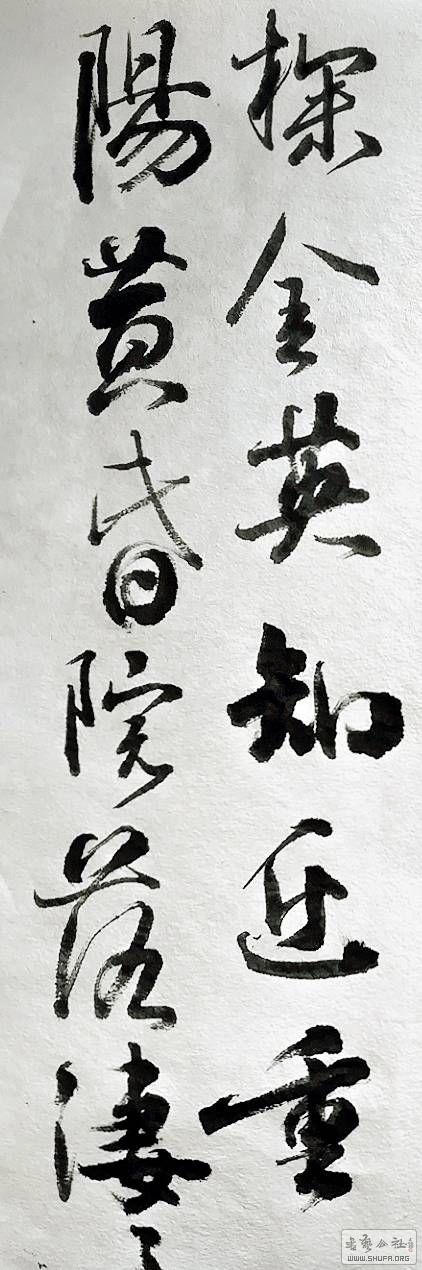 探金英知近重
陽黄昏院落淒〻
書藝公社
WWW.SHUFA.ORG